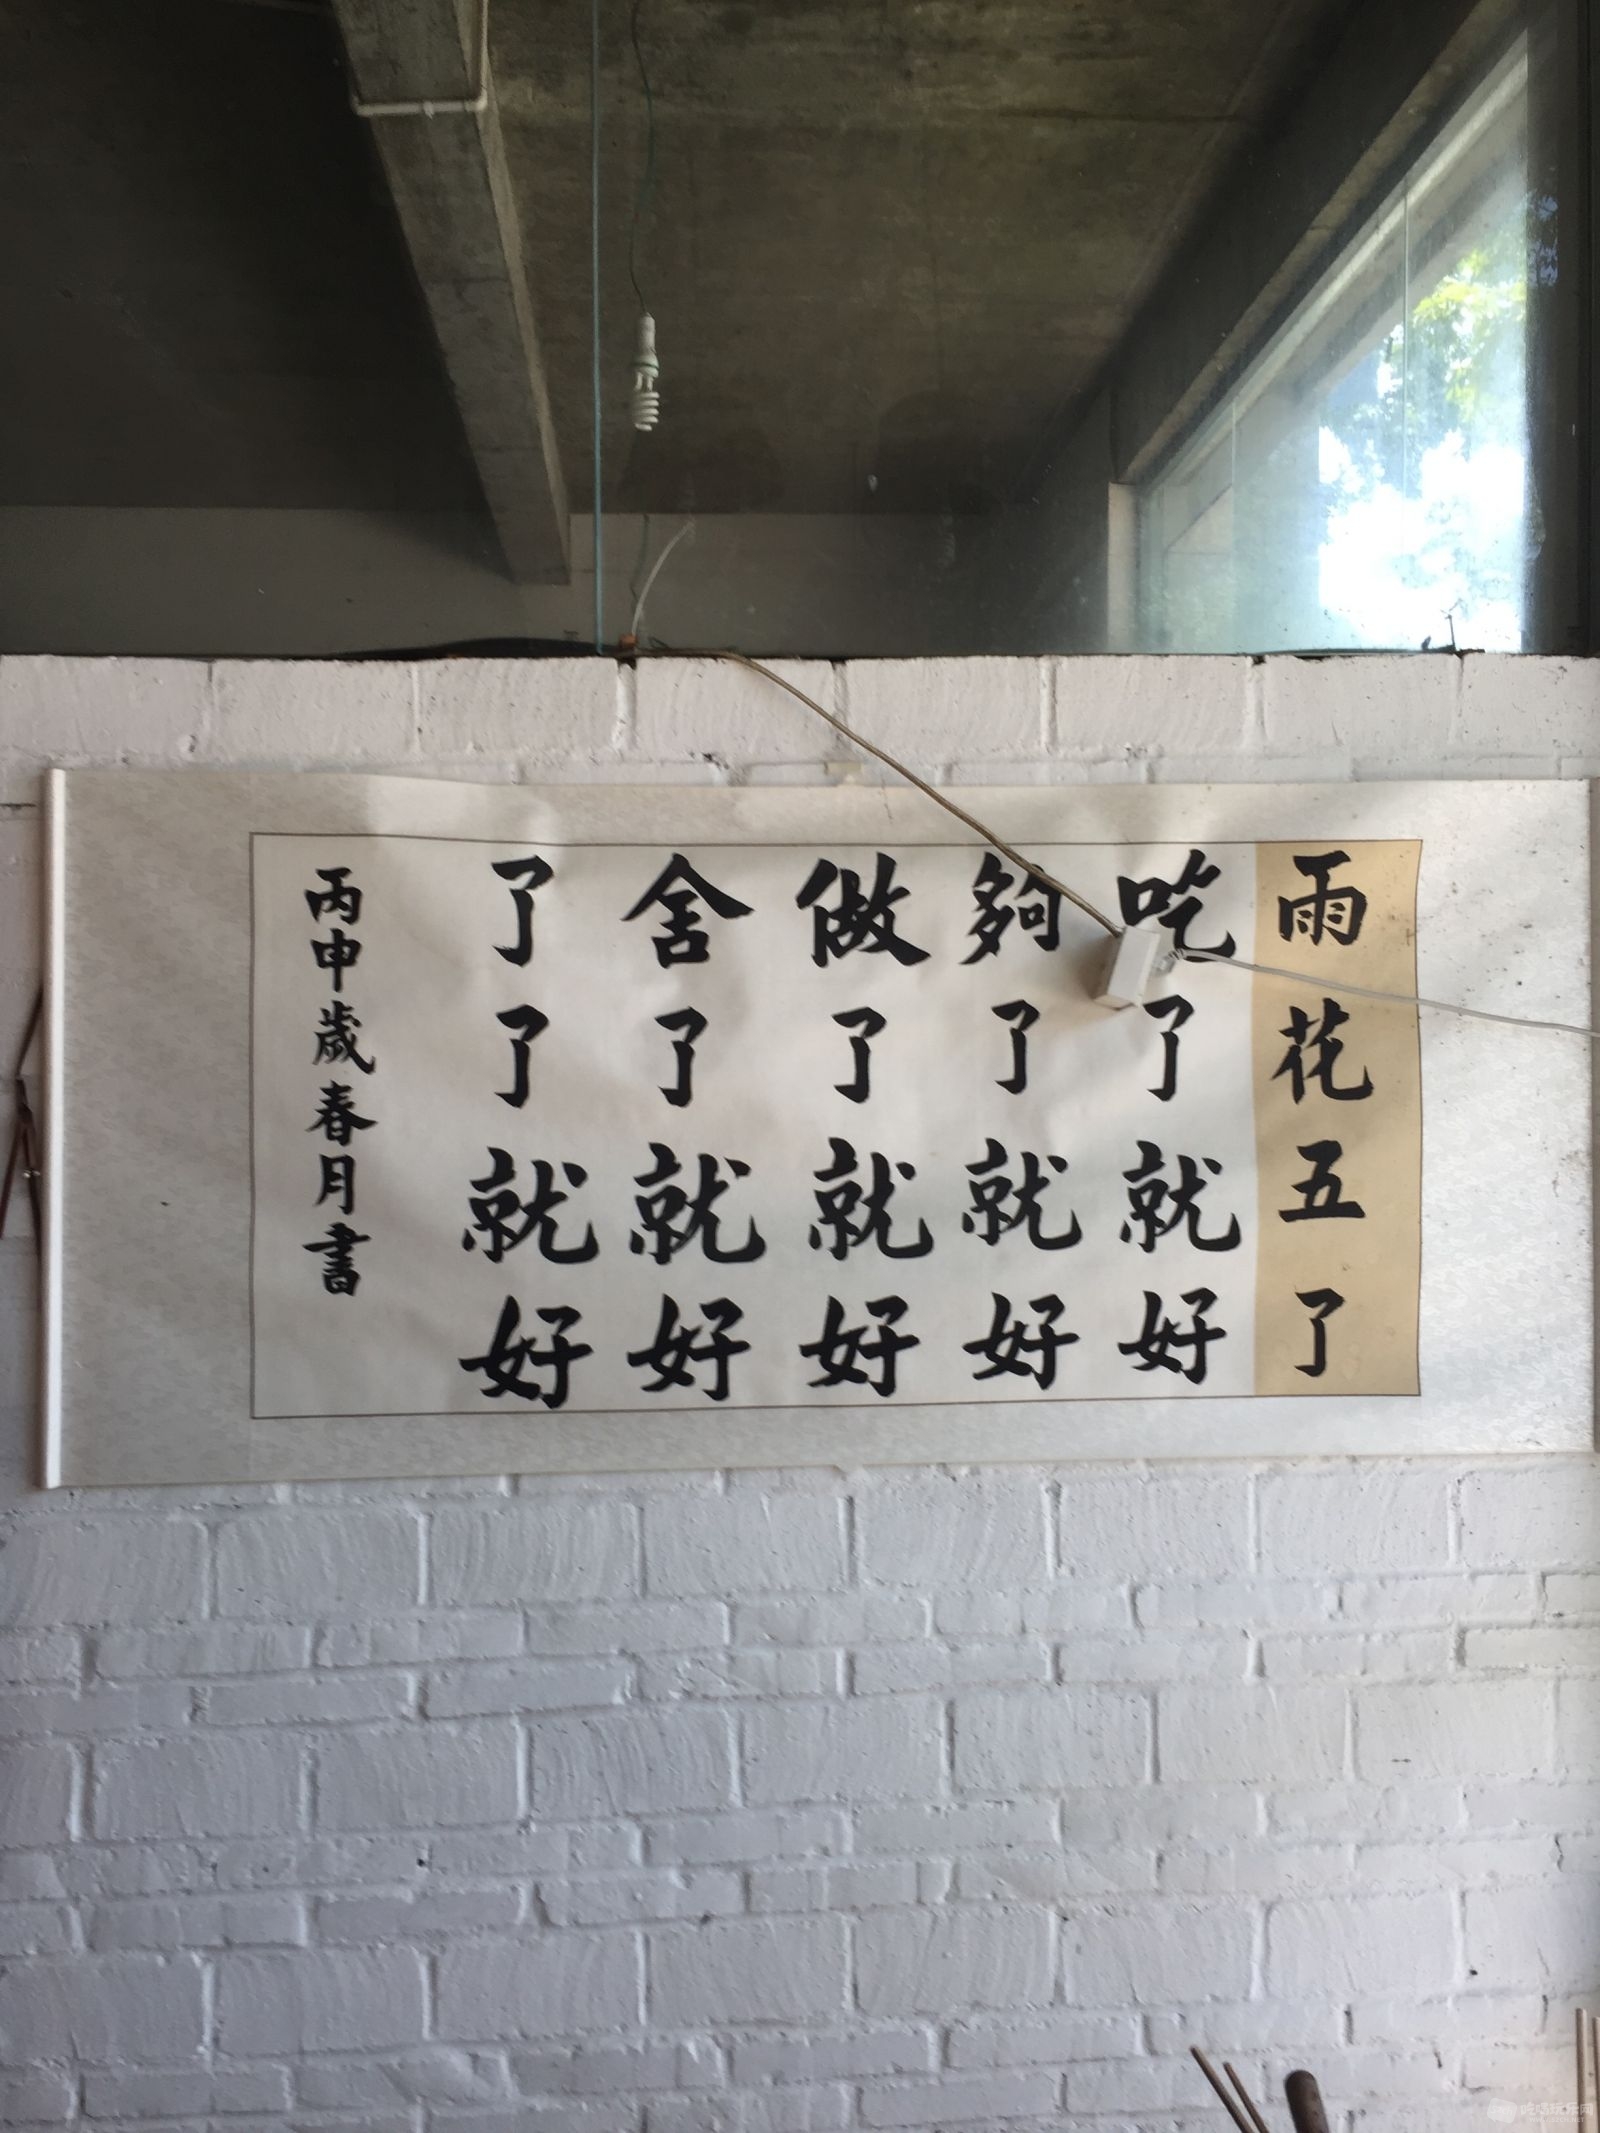 雨花五了
吃了就好
夠了就好
做了就好
舍了就好
了了就好
丙申歲春月書